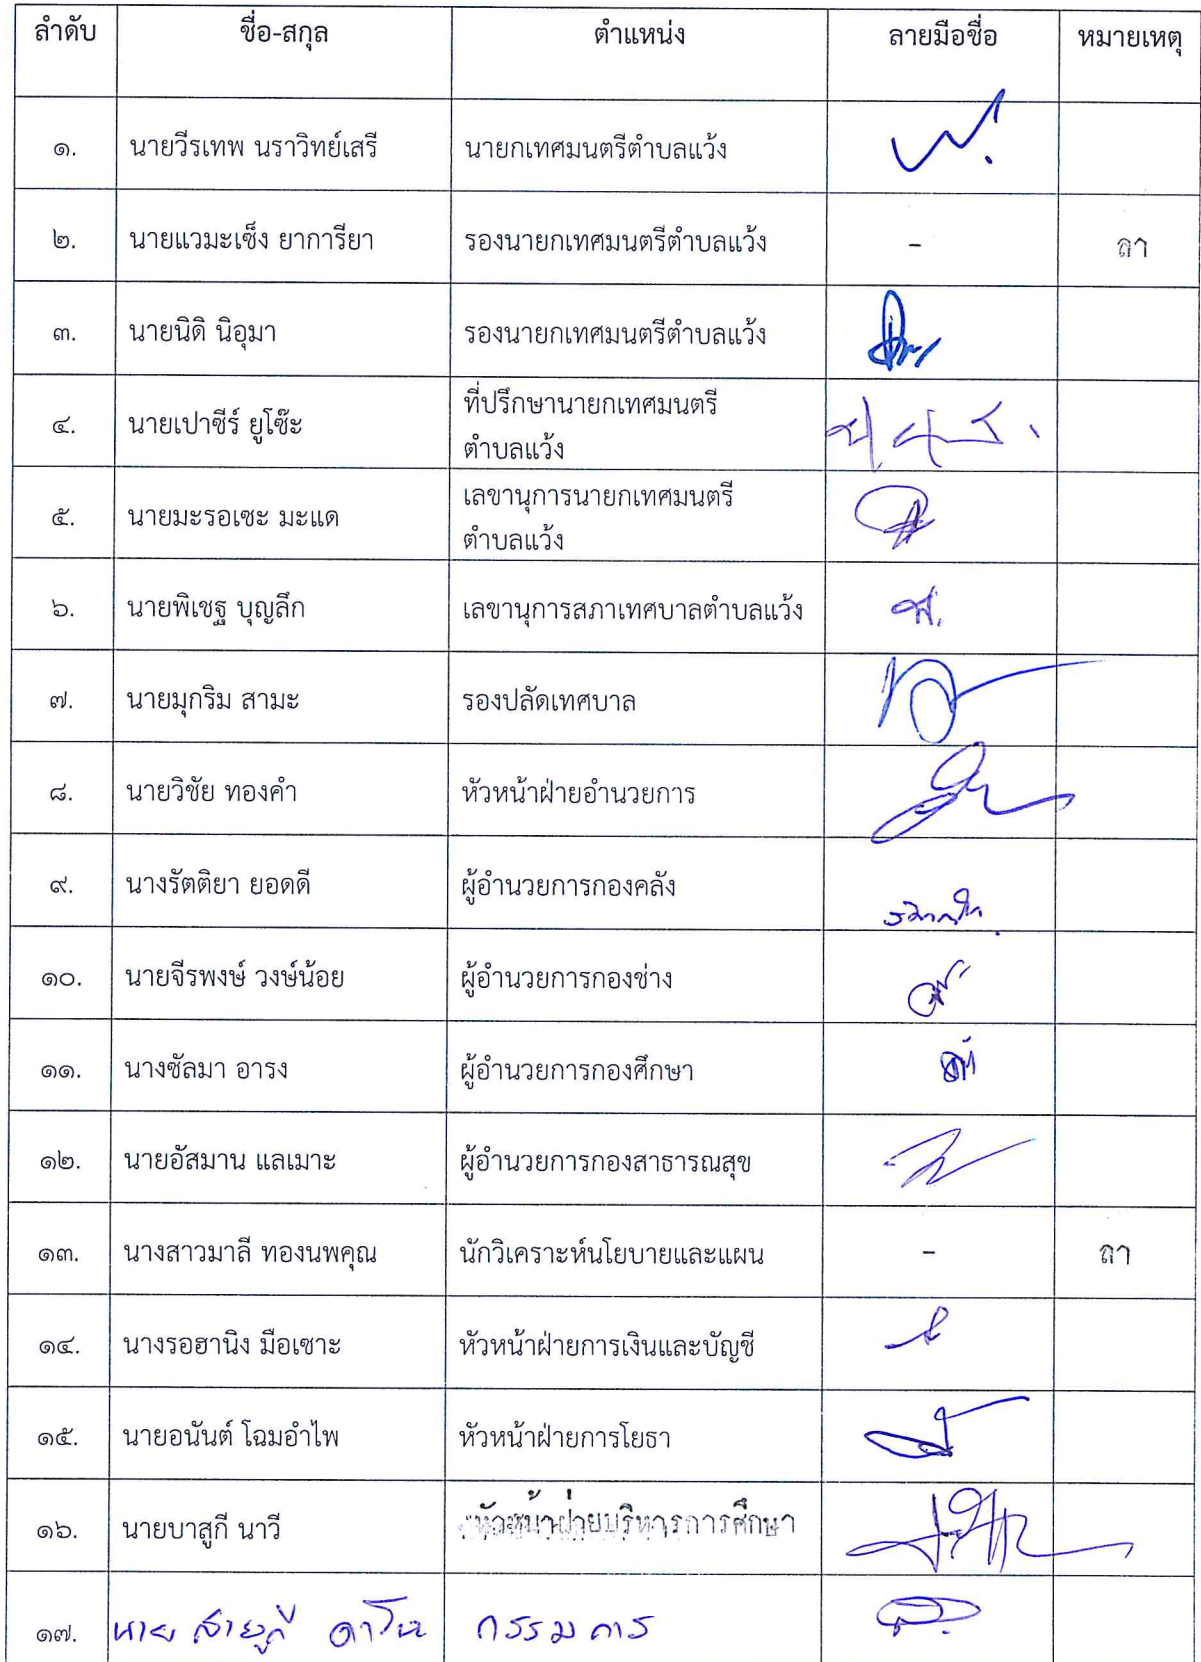 ลำดับ ชื่อ-สกุล ตำแหน่ง ลายมือชื่อ หมายเหตุ
๑. นายวีรเทพ นราวิทย์เสรี นายกเทศมนตรีตำบลแว้ง
๒. นายแวมะเซ็ง ยาการียา รองนายกเทศมนตรีตำบลแว้ง - ลา
๓. นายนิดิ นิอุมา รองนายกเทศมนตรีตำบลแว้ง
๔. นายเปาซีร์ ยูโซ๊ะ ที่ปรึกษานายกเทศมนตรี
ตำบลแว้ง
๕. นายมะรอเซะ มะแด เลขานุการนายกเทศมนตรี
ตำบลแว้ง
๖. นายพิเชฐ บุญลึก เลขานุการสภาเทศบาลตำบลแว้ง
๗. นายมุกริม สามะ รองปลัดเทศบาล
๘. นายวิชัย ทองคำ หัวหน้าฝ่ายอำนวยการ
๙. นางรัตติยา ยอดดี ผู้อำนวยการกองคลัง
๑๐. นายจีรพงษ์ วงษ์น้อย ผู้อำนวยการกองช่าง
๑๑. นางซัลมา อารง ผู้อำนวยการกองศึกษา
๑๒. นายอัสมาน แลเมาะ ผู้อำนวยการกองสาธารณสุข
๑๓. นางสาวมาลี ทองนพคุณ นักวิเคราะห์นโยบายและแผน - ลา
๑๔. นางรอฮานิง มือเซาะ หัวหน้าฝ่ายการเงินและบัญชี
๑๕. นายอนันต์ โฉมอำไพ หัวหน้าฝ่ายการโยธา
๑๖. นายบาสูกี นาวี หัวหน้าฝ่ายบริหารการศึกษา
๑๗. นาย กรรมการ